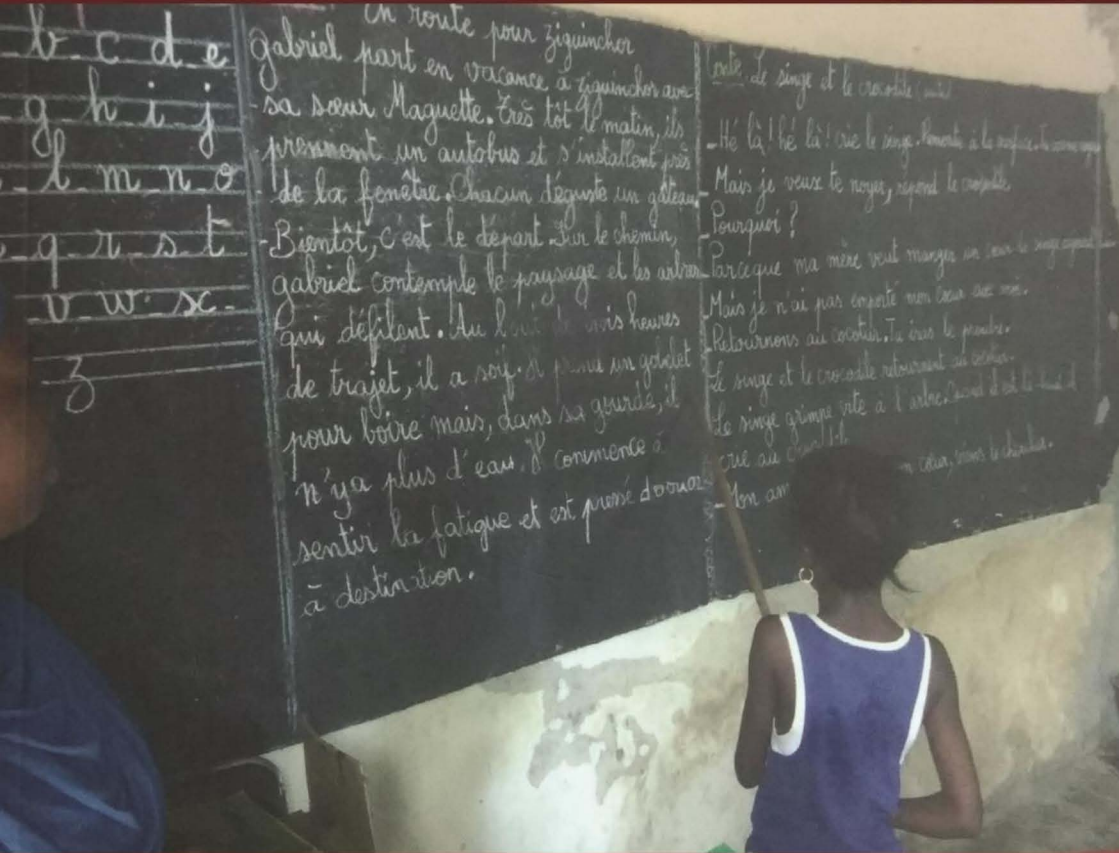 b c d e
g h i j
l m n o
q r s t
v w x
z
En route pour ziguinchor
gabriel part en vacance à ziguinchor avec
sa sœur Maguette. Très tôt le matin, ils
prennent un autobus et s'installent près
de la fenêtre. Chacun déguste un gâteau.
- Bientôt, c'est le départ. Sur le chemin,
gabriel contemple le paysage et les arbres
qui défilent. Au bout de trois heures
de trajet, il a soif. Il prend un gobelet
pour boire mais, dans sa gourde, il
n'ya plus d'eau. Il commence à
sentir la fatigue et est pressé
à destination.
Conte: Le singe et le crocodile (suite)
- Hé là! hé là! crie le singe. Remonte à la surface.
- Mais je veux te noyer, répond le crocodile
- Pourquoi?
- Parceque ma mère veut manger un cœur de singe
- Mais je n'ai pas emporté mon cœur avec moi.
- Retournons au cocotier. Tu iras le prendre.
Le singe et le crocodile retournent au cocotier.
Le singe grimpe vite à l'arbre. Quand il est là haut il
crie au
- Mon am cœur, viens le chercher.